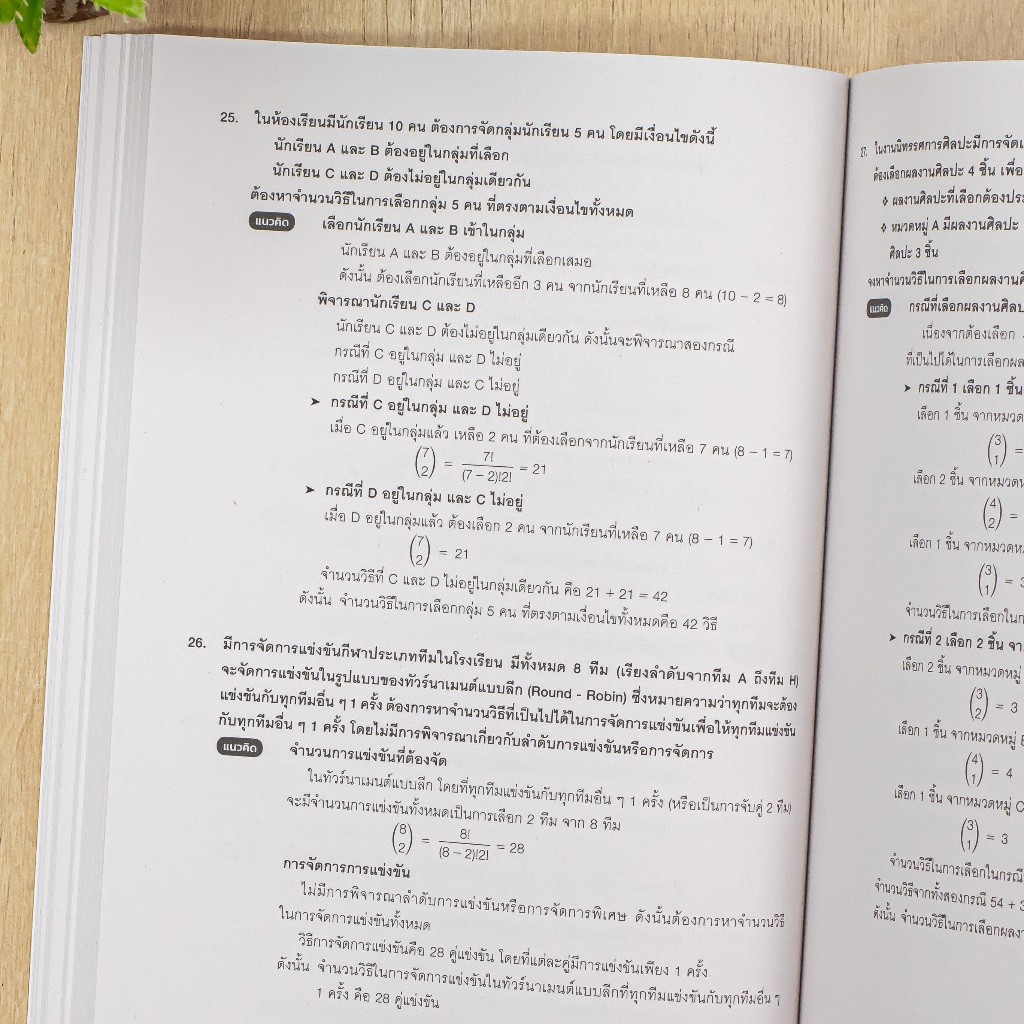 25. ในห้องเรียนมีนักเรียน 10 คน ต้องการจัดกลุ่มนักเรียน 5 คน โดยมีเงื่อนไขดังนี้
นักเรียน A และ B ต้องอยู่ในกลุ่มที่เลือก
นักเรียน C และ D ต้องไม่อยู่ในกลุ่มเดียวกัน
ต้องหาจำนวนวิธีในการเลือกกลุ่ม 5 คน ที่ตรงตามเงื่อนไขทั้งหมด
แนวคิด เลือกนักเรียน A และ B เข้าในกลุ่ม
นักเรียน A และ B ต้องอยู่ในกลุ่มที่เลือกเสมอ
ดังนั้น ต้องเลือกนักเรียนที่เหลืออีก 3 คน จากนักเรียนที่เหลือ 8 คน (10 − 2 = 8)
พิจารณานักเรียน C และ D
นักเรียน C และ D ต้องไม่อยู่ในกลุ่มเดียวกัน ดังนั้นจะพิจารณาสองกรณี
กรณีที่ C อยู่ในกลุ่ม และ D ไม่อยู่
กรณีที่ D อยู่ในกลุ่ม และ C ไม่อยู่
➤ กรณีที่ C อยู่ในกลุ่ม และ D ไม่อยู่
เมื่อ C อยู่ในกลุ่มแล้ว เหลือ 2 คน ที่ต้องเลือกจากนักเรียนที่เหลือ 7 คน (8 − 1 = 7)
(7 2) = 7! / (7 − 2)!2! = 21
➤ กรณีที่ D อยู่ในกลุ่ม และ C ไม่อยู่
เมื่อ D อยู่ในกลุ่มแล้ว ต้องเลือก 2 คน จากนักเรียนที่เหลือ 7 คน (8 − 1 = 7)
(7 2) = 21
จำนวนวิธีที่ C และ D ไม่อยู่ในกลุ่มเดียวกัน คือ 21 + 21 = 42
ดังนั้น จำนวนวิธีในการเลือกกลุ่ม 5 คน ที่ตรงตามเงื่อนไขทั้งหมดคือ 42 วิธี
26. มีการจัดการแข่งขันกีฬาประเภททีมในโรงเรียน มีทั้งหมด 8 ทีม (เรียงลำดับจากทีม A ถึงทีม H)
จะจัดการแข่งขันในรูปแบบของทัวร์นาเมนต์แบบลีก (Round - Robin) ซึ่งหมายความว่าทุกทีมจะต้อง
แข่งขันกับทุกทีมอื่น ๆ 1 ครั้ง ต้องการหาจำนวนวิธีที่เป็นไปได้ในการจัดการแข่งขันเพื่อให้ทุกทีมแข่งขัน
กับทุกทีมอื่น ๆ 1 ครั้ง โดยไม่มีการพิจารณาเกี่ยวกับลำดับการแข่งขันหรือการจัดการ
แนวคิด จำนวนการแข่งขันที่ต้องจัด
ในทัวร์นาเมนต์แบบลีก โดยที่ทุกทีมแข่งขันกับทุกทีมอื่น ๆ 1 ครั้ง (หรือเป็นการจับคู่ 2 ทีม)
จะมีจำนวนการแข่งขันทั้งหมดเป็นการเลือก 2 ทีม จาก 8 ทีม
(8 2) = 8! / (8 − 2)!2! = 28
การจัดการการแข่งขัน
ไม่มีการพิจารณาลำดับการแข่งขันหรือการจัดการพิเศษ ดังนั้นต้องการหาจำนวนวิธี
ในการจัดการแข่งขันทั้งหมด
วิธีการจัดการแข่งขันคือ 28 คู่แข่งขัน โดยที่แต่ละคู่มีการแข่งขันเพียง 1 ครั้ง
ดังนั้น จำนวนวิธีในการจัดการแข่งขันในทัวร์นาเมนต์แบบลีกที่ทุกทีมแข่งขันกับทุกทีมอื่น ๆ
1 ครั้ง คือ 28 คู่แข่งขัน
27. ในงานนิทรรศการศิลปะมีการจัด
ต้องเลือกผลงานศิลปะ 4 ชิ้น เพื่อ
❖ ผลงานศิลปะที่เลือกต้อง
❖ หมวดหมู่ A มีผลงานศิลปะ
ศิลปะ 3 ชิ้น
จงหาจำนวนวิธีในการเลือกผลงาน
แนวคิด กรณีที่เลือกผลงาน
เนื่องจากต้องเลือก
ที่เป็นไปได้ในการเลือก
➤ กรณีที่ 1 เลือก 1 ชิ้น
เลือก 1 ชิ้น จากหมวด
(3 1) =
เลือก 2 ชิ้น จากหมวด
(4 2) =
เลือก 1 ชิ้น จากหมวด
(3 1) = 3
จำนวนวิธีในการเลือกใน
➤ กรณีที่ 2 เลือก 2 ชิ้น
เลือก 2 ชิ้น จากหมวดหมู่
(3 2) = 3
เลือก 1 ชิ้น จากหมวดหมู่
(4 1) = 4
เลือก 1 ชิ้น จากหมวดหมู่ C
(3 1) = 3
จำนวนวิธีในการเลือกในกรณี
จำนวนวิธีจากทั้งสองกรณี 54 + 3
ดังนั้น จำนวนวิธีในการเลือก